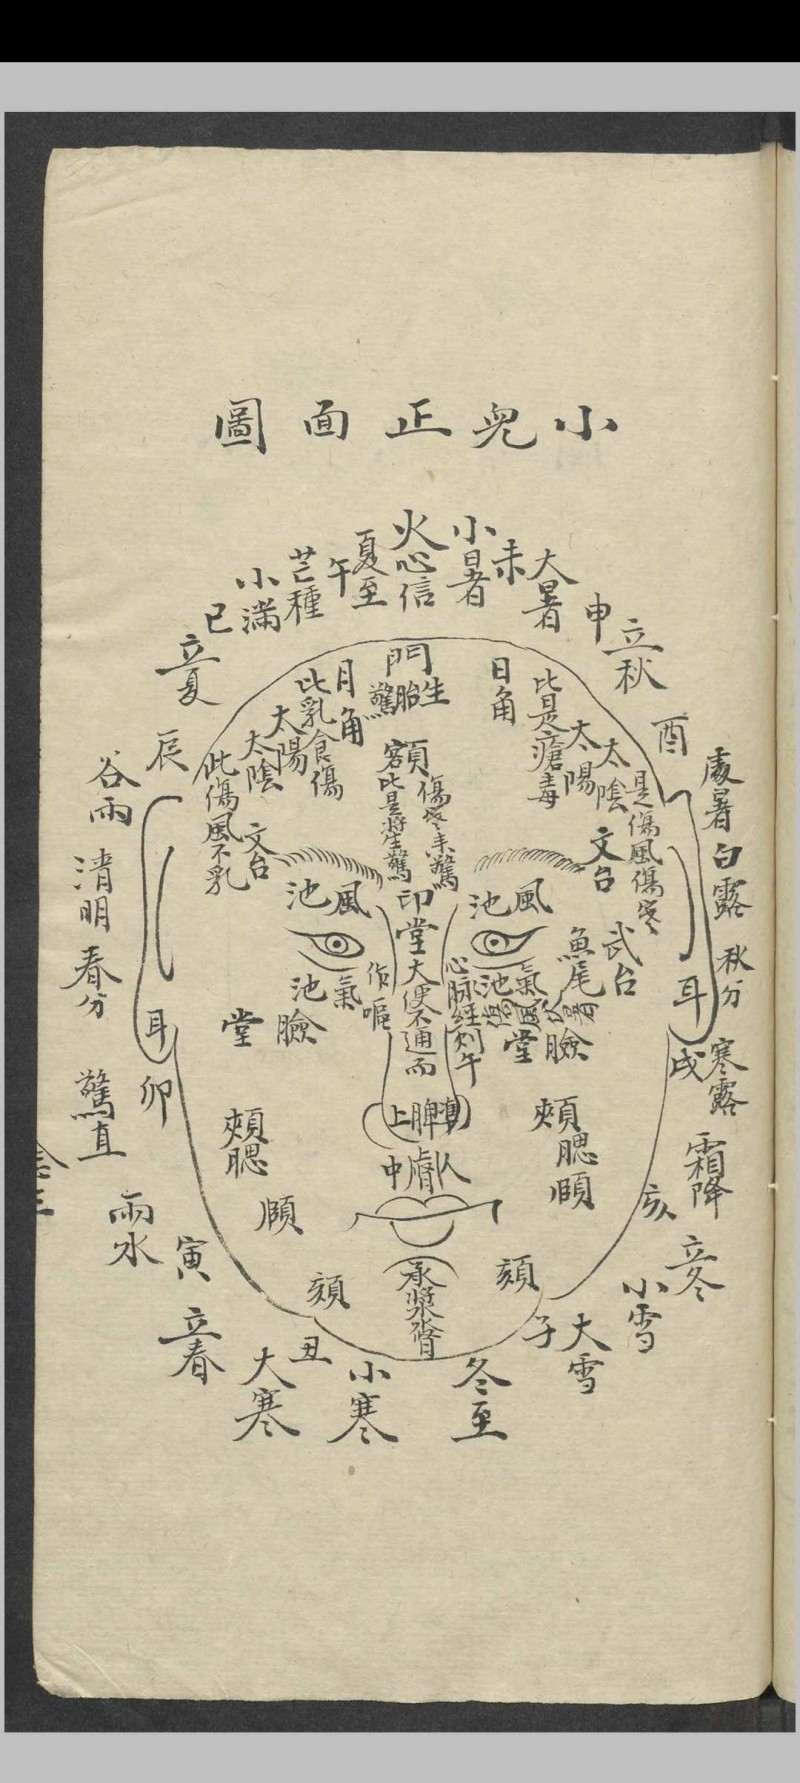 小兒正面圖
火心信
小暑
未
大暑
申
立秋
酉
處暑
白露
秋分
寒露
戌
霜降
亥
立冬
小雪
大雪
子
冬至
小寒
丑
大寒
立春
寅
雨水
驚直
卯
春分
清明
谷雨
辰
立夏
巳
小滿
芒種
午
夏至
門
生胎驚
日角
此是瘡毒
太陽
太陰
是傷風傷寒
文台
武台
魚尾
耳
月角
此乳食傷
太陽
太陰
此傷風不乳
文台
額
此是將生驚
風池
風池
印堂
大便不通而
作嘔
心脉經
氣池
氣池
臉堂
臉堂
耳
上脾
人
中
頰腮
頰腮
頤
頤
頦
頦
承漿